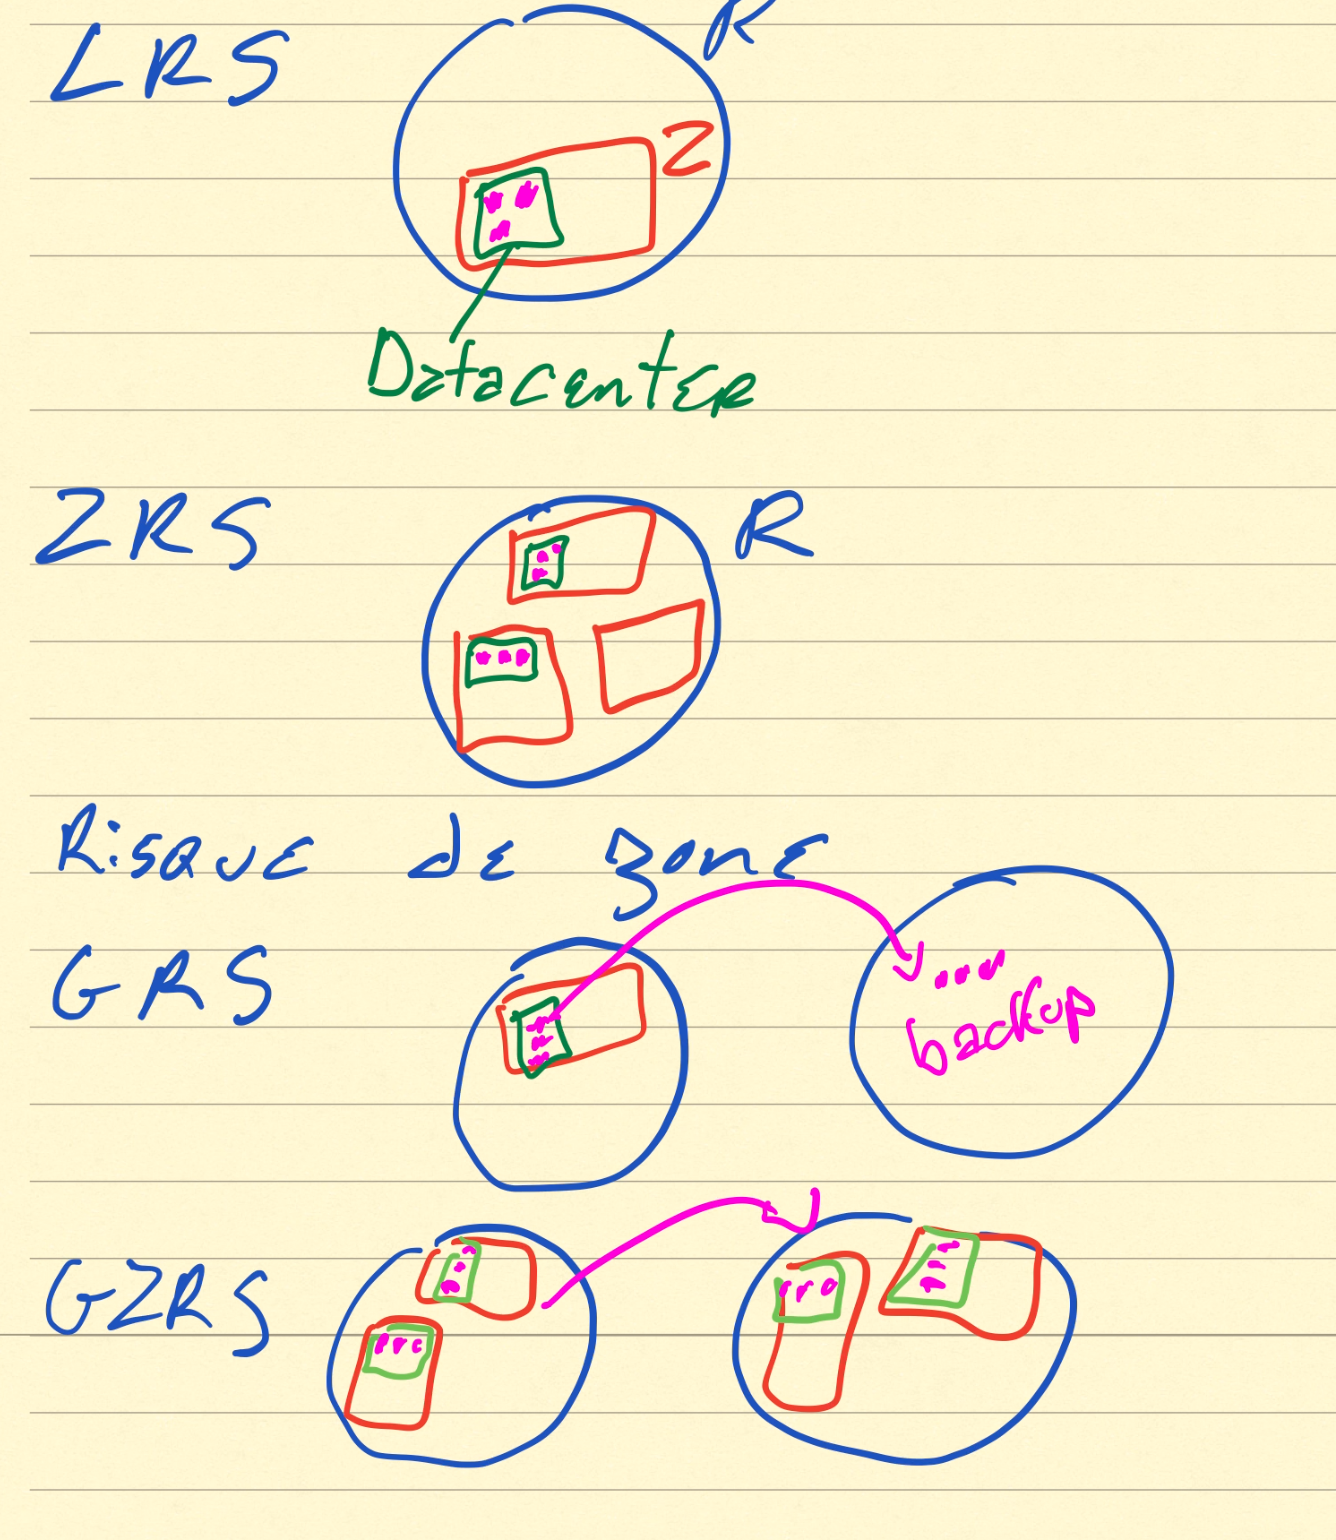 LRS
R
Z
Datacenter
ZRS
R
Risque de zone
GRS
backup
GZRS